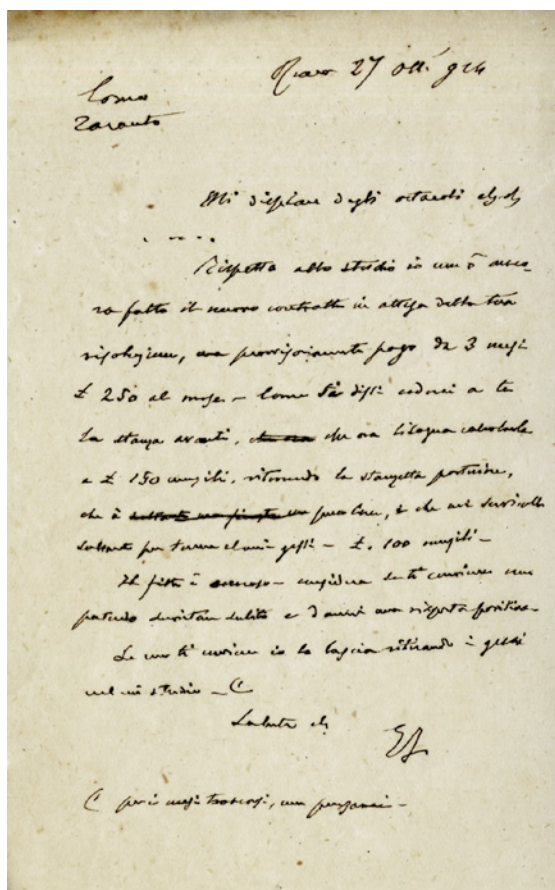 27 Ott. 924
Como
Taranto
Mi dispiace degli ostacoli
. - - .
Rispetto allo studio io non ò anco-
ra fatto il nuovo contratto in attesa della tua
risoluzione, ma provvisoriamente pago da 3 mesi
£ 250 al mese - Come ti dissi cederei a te
la stanza avanti, che ora che ora bisogna
a £ 150 mensili, ritirando la stanzetta posteriore,
che è
soltanto per i miei gessi - £. 100 mensili -
Il fitto è oneroso - considera se ti conviene non
potendo subito e d'avermi una risposta positiva -
Se non ti conviene io la lascio ritirando i gessi
nel mio studio - C
Saluta
C per i mesi trascorsi, non